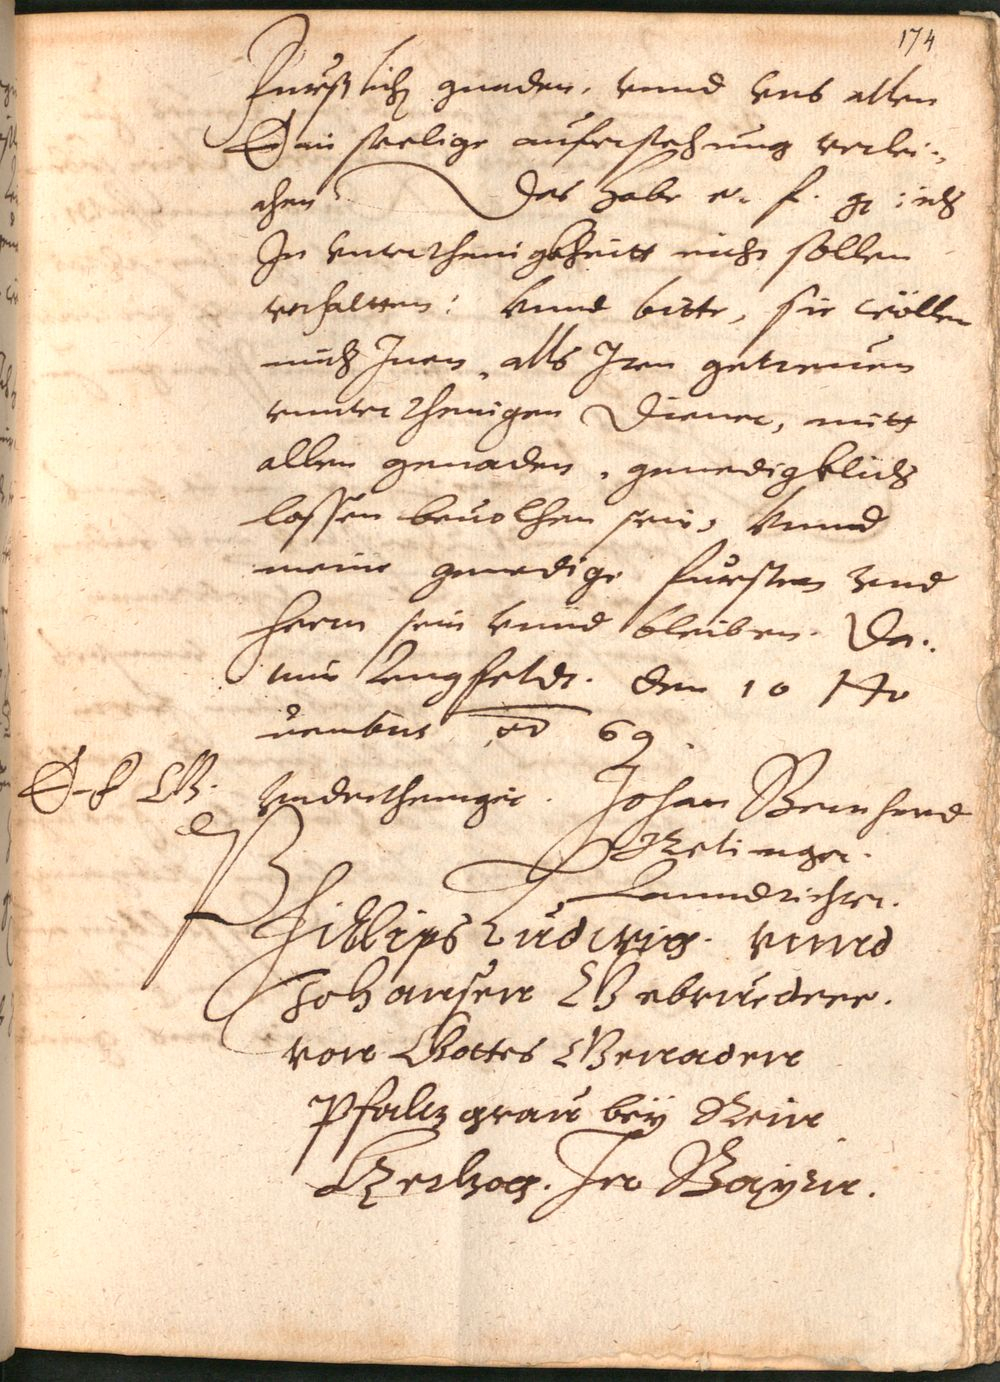 174
Furstlich gnaden, vnnd vns allen
Ain seelige aufferstehung verlei-
chen Das habe e. f. g: ich
In vnterthenigkheitt nicht sollen
verhaltten: Vnnd bitte, sie wöllen
mich Inen, alls Iren getreuen
vnnterthenigen Diener, mitt
allen genaden, genedigklich
lassen beuolhen sein, Vnnd
meine genedige fursten vnd
herrn sein vnnd bleiben. Da-
tum Lengfeldt. den 10 No
uembris 69.
E F G. Vnderthenger. Johan Bernhard
Lanndrichter.
Phillips Ludwig. vnnd
Johansen Gebrueder.
von Gottes Genaden
Pfaltzgrau bey Rein
Hertzog. In Bayrn.